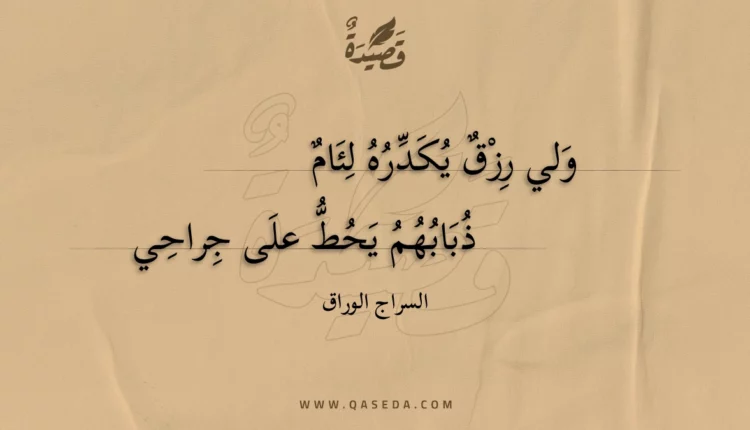 قَصِيْدَةٌ
وَلي رِزْقٌ يُكَدِّرُهُ لِئَامٌ
ذُبَابُهُمُ يَحُطُّ علَى جِراحِي
السراج الوراق
WWW.QASEDA.COM